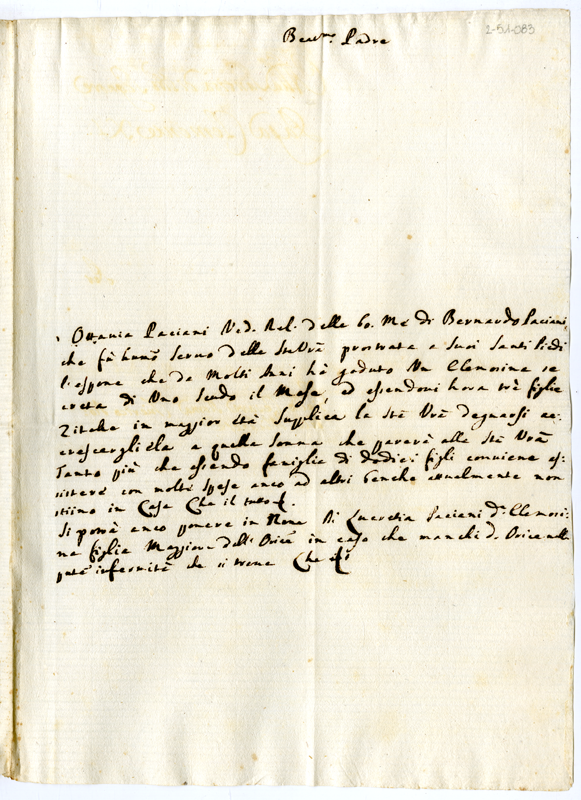 2-51-083
Beat.mo Padre
Ottavia Paciani Ved. Rel. della bo. Me. di Bernardo Paciani,
che fù hum.o Servo della S.tà V.ra prostrata a Suoi Santi Piedi
l'espone che da Molti Anni hà goduto Un Elemosina se
creta di Uno Scudo il Mese, ed essendoni hora trè figlie
Zitelle in maggior età Supplica la S.tà V.ra degnarsi ac:
crescergliela a quella Somma che parerà alla S.tà V.ra
Tanto più che essendo famiglia di dodici figli conviene as:
sistere con molte spese anco ad altri benche attualmente non
stiino in Casa Che il tutto
Si possa anco ponere in Nome Di Lucretia Paciani d.a Elemosi:
na figlia Maggiore dell' Orice in caso che manchi d.a Orice nella
pnte infermità che si trova Che